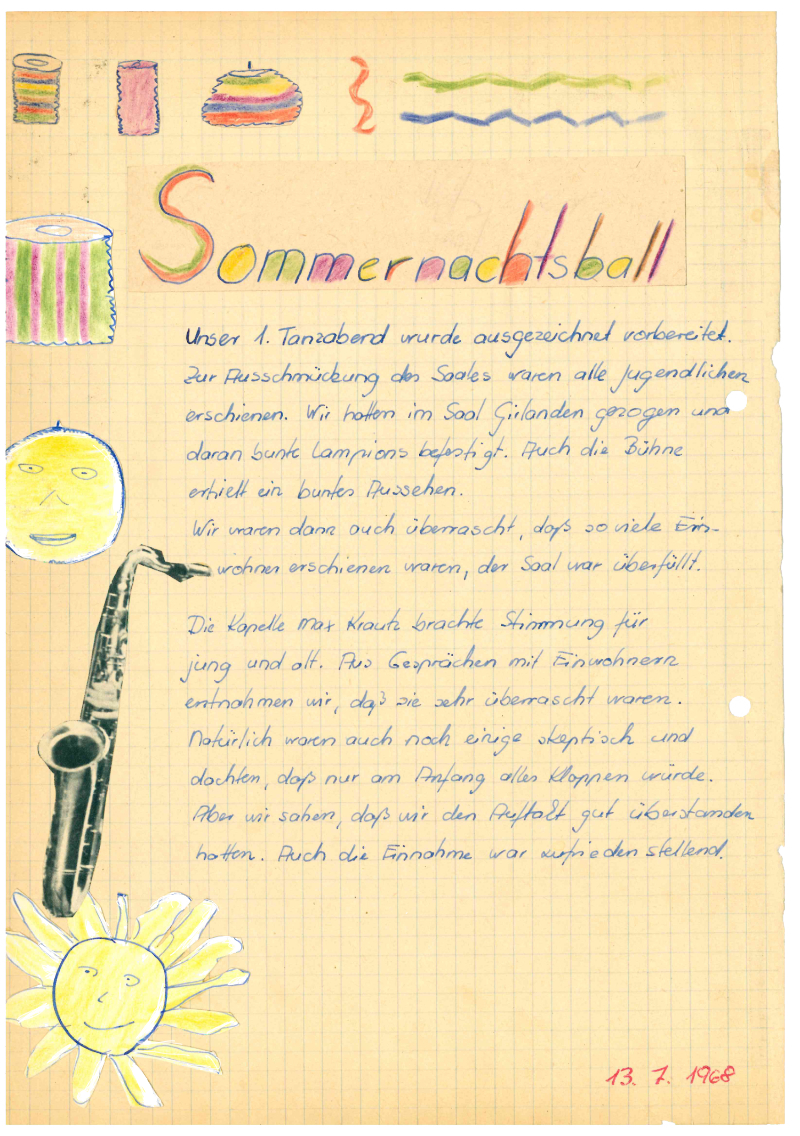 Sommernachtsball
Unser 1. Tanzabend wurde ausgezeichnet vorbereitet.
Zur Ausschmückung des Saales waren alle Jugendlichen
erschienen. Wir hatten im Saal Girlanden gezogen und
daran bunte Lampions befestigt. Auch die Bühne
erhielt ein buntes Aussehen.
Wir waren dann auch überrascht, daß so viele Ein-
wohner erschienen waren, der Saal war überfüllt.
Die Kapelle Max Krautz brachte Stimmung für
jung und alt. Aus Gesprächen mit Einwohnern
entnahmen wir, daß sie sehr überrascht waren.
Natürlich waren auch noch einige skeptisch und
dachten, daß nur am Anfang alles klappen würde.
Aber wir sahen, daß wir den Auftakt gut überstanden
hatten. Auch die Einnahme war zufriedenstellend.
13. 7. 1968